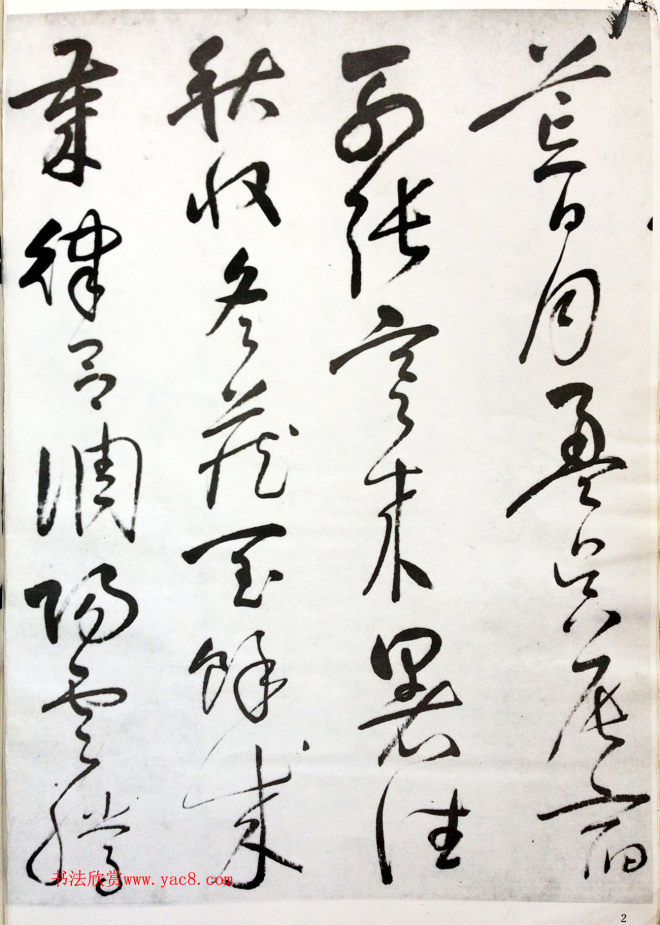 荒日月盈昃辰宿
列張寒來暑往
秋收冬藏閏餘成
歲律呂調陽雲騰
书法欣赏www.yac8.com
2